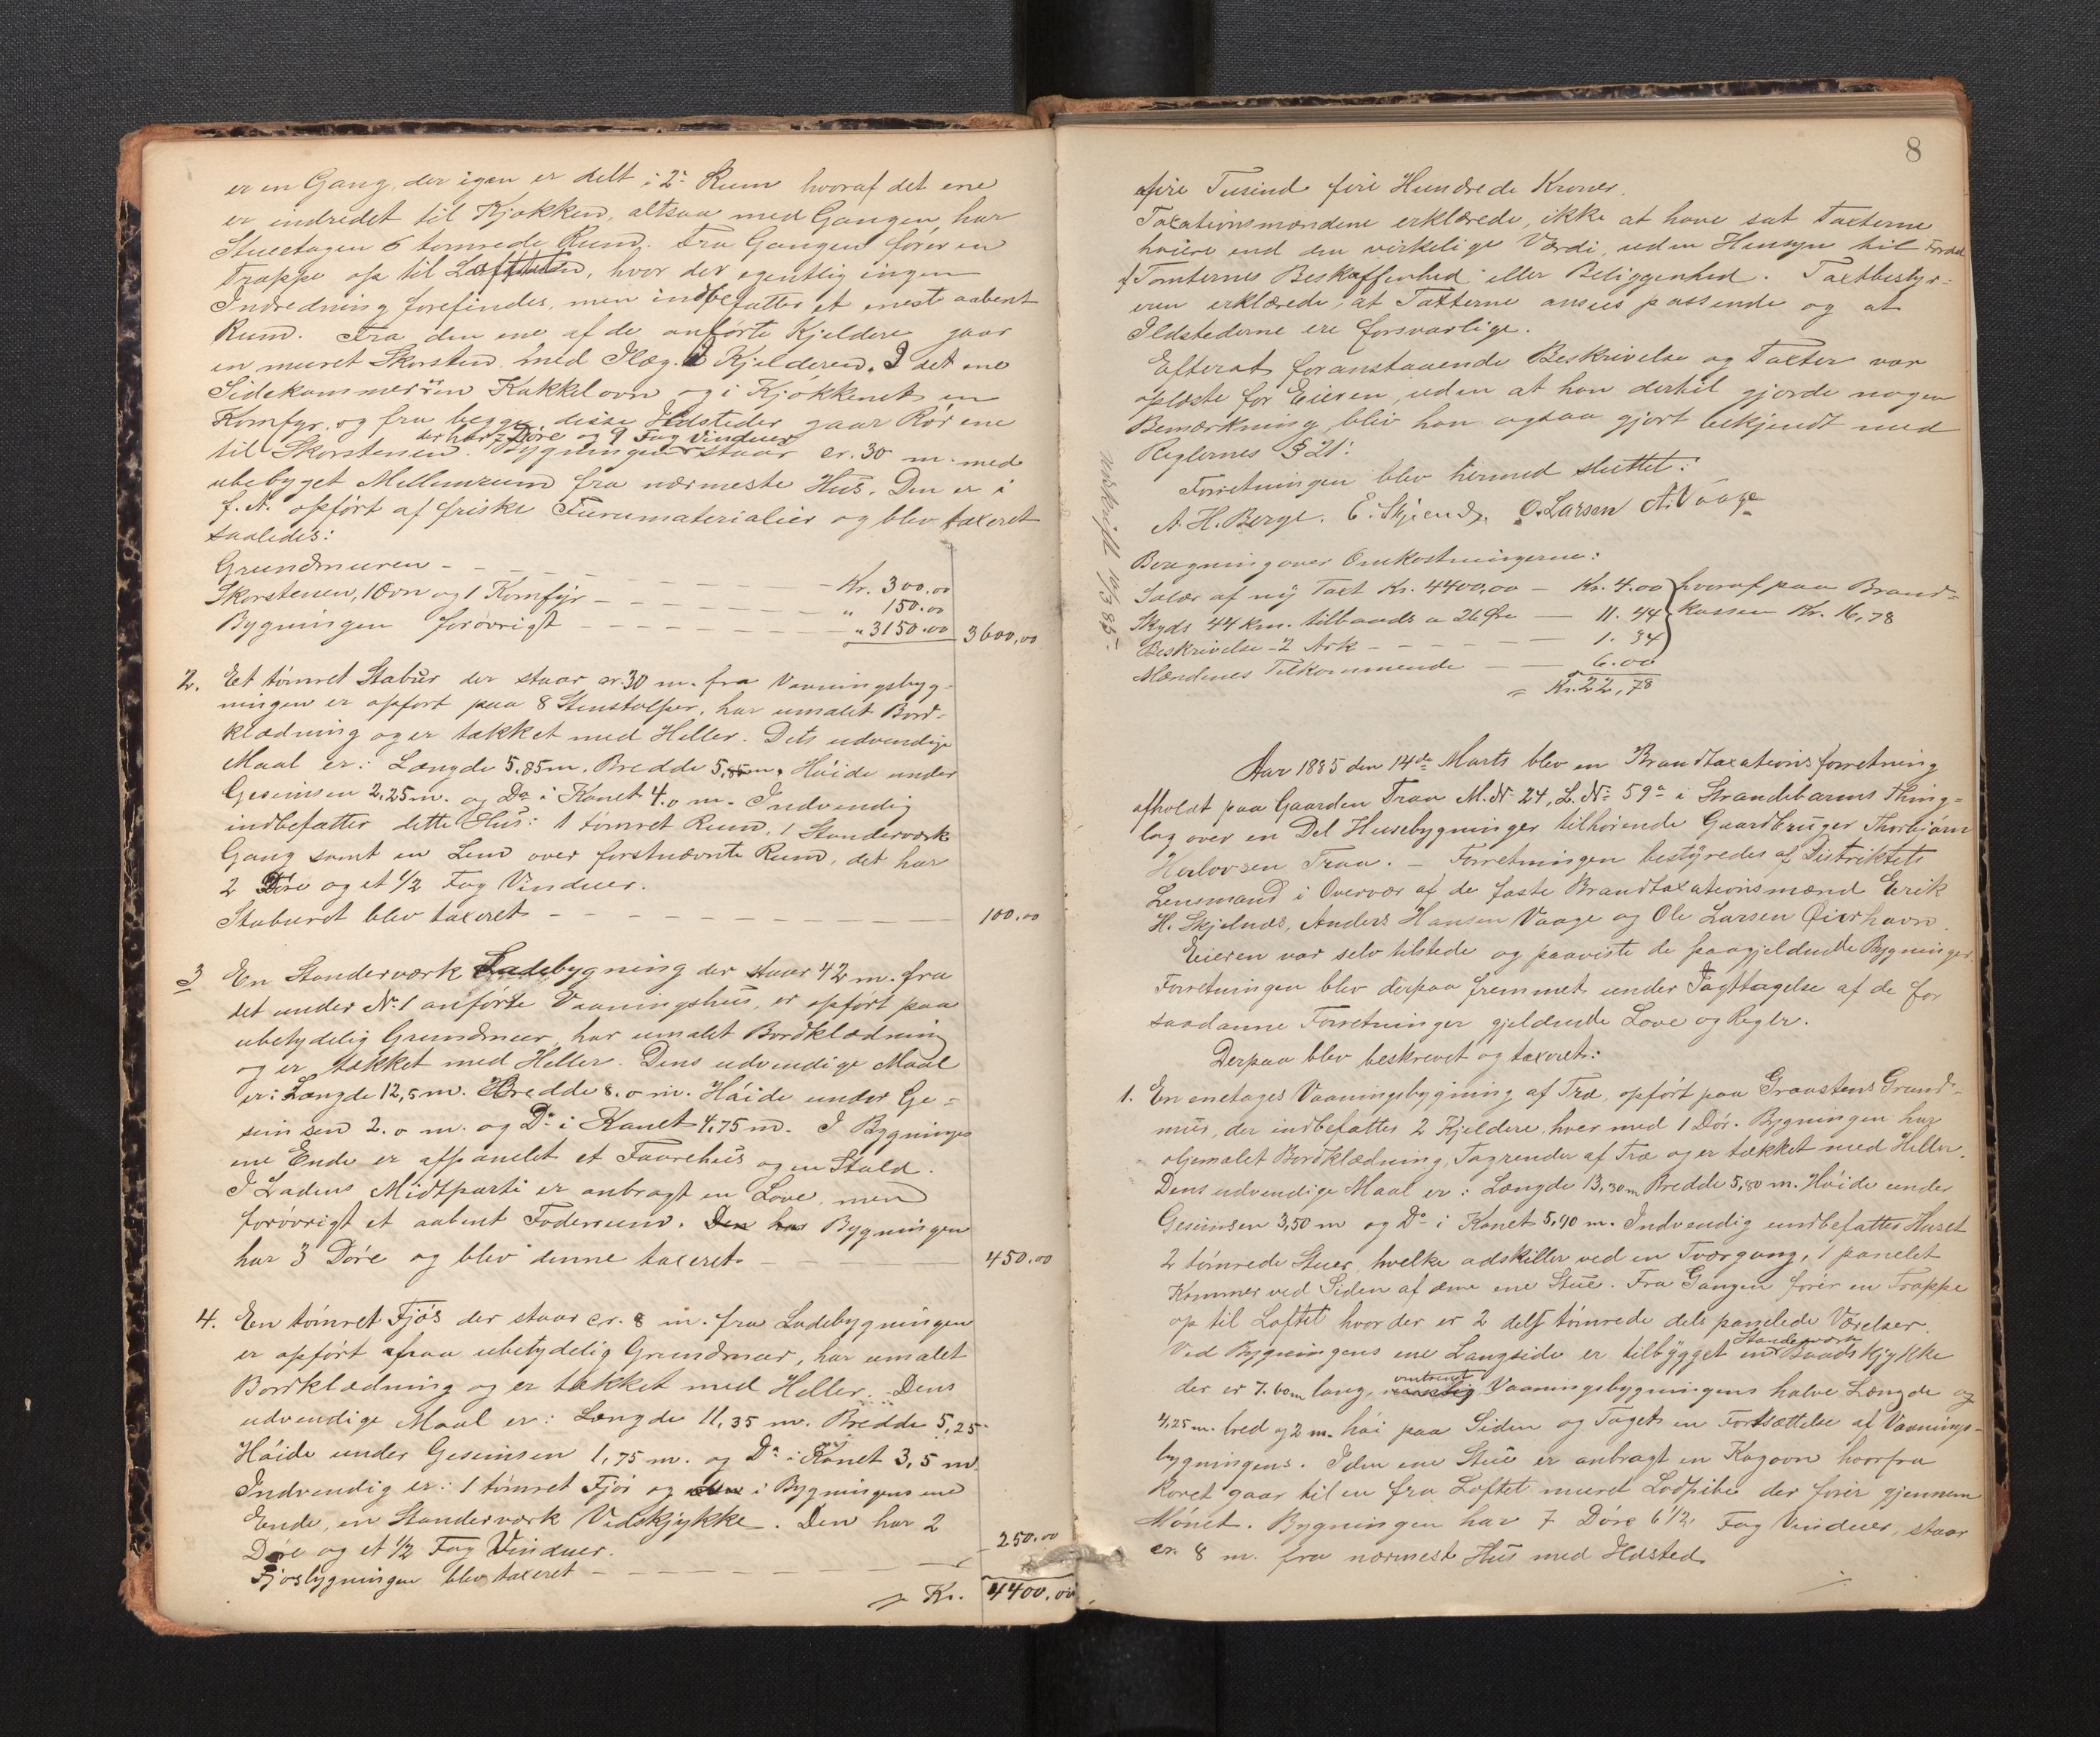 er en Gang, der igen er delt i 2de Rum hvoraf det ene
er indredet til Kjøkken, altsaa med Gangen, har
Stueetagen 6 tømrede Rum. Fra Gangen fører en
Trappe op til Loftet, hvor der egentlig ingen
Indredning forefindes, men indbefatter et enest aabent
Rum. Fra den ene af de anførte Kjeldere gaar
en muret Skorsten med Ilæg. i Kjelderen. I det ene
Sidekammer en Kakkelovn og i Kjøkkenet en
Komfyr, og fra begge disse Ildsteder gaar Rørene
der har 7 Døre og 9 Fag Vinduer
til Skorstenen. Bygningen staar cr. 30 m. med
ubebyget Mellemrum fra nærmeste Hus. Den er i
f. A. opført af friske Furumaterialier og blev taxeret
saaledes:
Grundmuren - Kr. 300.00
Skorstenen, 1 Ovn og 1 Komfyr - " 150.00
Bygningen forøvrigt - " 3150.00 3600,00
2. Eet tømret Stabur der staar cr. 30 m. fra Vaaningsbyg-
ningen er opført paa 8 Stenstolper, har umalet Bord-
klædning og er tækket med Heller. Dets udvendige
Maal er: Længde 5,85 m. Bredde 5,85 m. Høide under
Gesimsen 2,25 m. og Do i Rønet 4.0 m. Indvendig
indbefatter dette Hus: 1 tømret Rum, 1 Standerværk
Gang samt en Lem over førstnævnte Rum, det har
2 Døre og et 1/2 Fag Vinduer.
Staburet blev taxeret - 100.00
3 En Standerværk Ladebygning der staar 42 m. fra
det under No 1 anførte Vaaningshus, er opført paa
ubetydelig Grundmur, har umalet Bordklædning
og er tækket med Heller. Dens udvendige Maal
er: Længde 12,5 m. Bredde 8.0 m. Høide under Ge-
simsen 2.0 m. og Do i Rønet 4,75 m. I Bygningens
ene Ende er afpanelet et Faarehus og en Stald.
I Ladens Midtparti er anbragt en Love, men
forøvrigt et aabent Foderrum. Den har Bygningen
har 3 Døre og blev denne taxeret - 450.00
4. En tømret Fjøs der staar cr. 8 m. fra Ladebygningen
er opført paa ubetydelig Grundmur, har umalet
Bordklædning og er tækket med Heller. Dens
udvendige Maal er: Længde 11,35 m. Bredde 5,25
Høide under Gesimsen 1,75 m. og Do i Rønet 3,5 m.
Indvendig er: 1 tømret Fjøs og i Bygningens ene
Ende, en Standerværk Vedskjykke. Den har 2
Døre og et 1/2 Fag Vinduer.
Fjøsbygningen blev taxeret - 250.00
Kr. 4400.00
8
fire Tusind fire Hundrede Kroner.
Taxationsmændene erklærede, ikke at have sat Taxterne
høiere end den virkelige Værdi, uden Hensyn til Fordel
f Tomternes Beskaffenhed eller Beliggenhed. Taxtbestyr-
eren erklærede, at Taxterne ansees passende og at
Ildstederne ere forsvarlige.
Efterat foranstaaende Beskrivelse og Taxter var
oplæste for Eieren, uden at han dertil gjorde nogen
Bemærkning, blev han ogsaa gjort bekjendt med
Reglernes § 21.
Forretningen blev hermed sluttet:
A. H. Berge. E. Skjend. O. Larsen A. Vaage
Udskrift 14/3 85.
Beregning over Omkostningerne:
Salær af ny Taxt Kr. 4400,00 - Kr. 4.00 } hvoraf paa Brand-
Skyds 44 km. tillands a 26 Øre - 11.44 } kassen Kr. 16,78
Beskrivelse 2 Ark - 1.34
Mændenes Tilkommende - 6.00
Kr. 22,78
Aar 1885 den 14de Marts blev en Brandtaxationsforretning
afholdt paa Gaarden Traa M. No 24, L. No 59a i Strandebarms Thing-
lag over en Del Husebygninger tilhørende Gaardbruger Thorbjørn
Herlovsen Traa. - Forretningen bestyredes af Distriktets
Lensmand i Overvær af de faste Brandtaxationsmænd Erik
H. Skjelnes, Anders Hansen Vaage og Ole Larsen Øierhavn.
Eieren var selv tilstede og paaviste de paagjeldende Bygninger.
Forretningen blev derpaa fremmet under Iagttagelse af de for
saadanne Forretninger gjeldende Love og Regler.
Derpaa blev beskrevet og taxeret:
1. En enetages Vaaningsbygning af Træ, opført paa Graastens Grund-
mur, der indbefatter 2 Kjeldere, hver med 1 Dør. Bygningen har
oljemalet Bordklædning, Tagrender af Træ og er tækket med Heller.
Dens udvendige Maal er: Længde 13,30 m Bredde 5,80 m. Høide under
Gesimsen 3,50 m og Do i Rønet 5,90 m. Indvendig indbefatter Huset
2 tømrede Stuer, hvilke adskilles ved en Tværgang, 1 panelet
Kammer ved Siden af den ene Stue. Fra Gangen fører en Trappe
op til Loftet hvor der er 2 dels tømrede dels panelede Værelser.
Standerværk
Ved Bygningens ene Langside er tilbygget en Baadskjykke
omtrent
der er 7.60 m lang, Vaaningsbygningens halve Længde og
4,25 m. bred og 2 m. høi paa Siden og Taget en Fortsættelse af Vaanings-
bygningens. I den ene Stue er anbragt en Kogovn hvorfra
Røret gaar til en fra Loftet muret Lodpibe der fører gjennem
Mønet. Bygningen har 7 Døre 6 1/2 Fag Vinduer, staar
cr. 8 m. fra nærmest Hus med Ildsted.